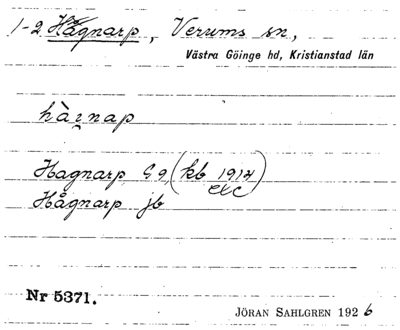 1-2 Hågnarp, Verums sn,
Västra Göinge hd, Kristianstad län
hàgnap
Hagnarp G9, (kb 1914 etc)
Hågnarp jb
Nr 5371.
JÖRAN SAHLGREN 1926